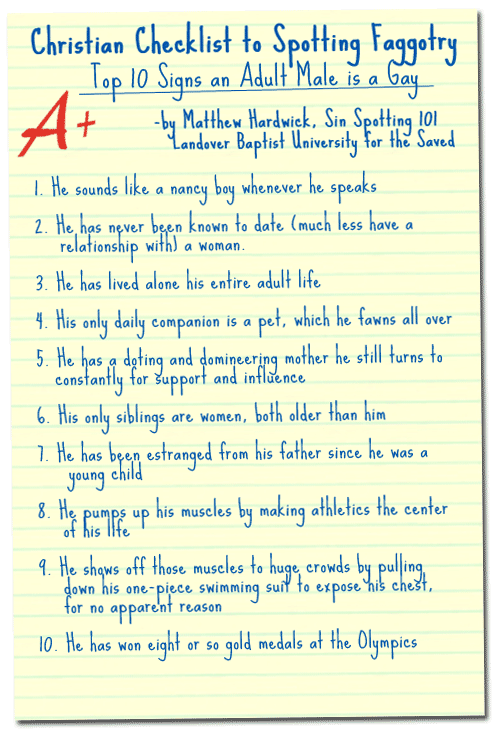 Christian Checklist to Spotting Faggotry
Top 10 Signs an Adult Male is a Gay
A+
-by Matthew Hardwick, Sin Spotting 101
Landover Baptist University for the Saved
1. He sounds like a nancy boy whenever he speaks
2. He has never been known to date (much less have a
relationship with) a woman.
3. He has lived alone his entire adult life
4. His only daily companion is a pet, which he fawns all over
5. He has a doting and domineering mother he still turns to
constantly for support and influence
6. His only siblings are women, both older than him
7. He has been estranged from his father since he was a
young child
8. He pumps up his muscles by making athletics the center
of his life
9. He shows off those muscles to huge crowds by pulling
down his one-piece swimming suit to expose his chest,
for no apparent reason
10. He has won eight or so gold medals at the Olympics